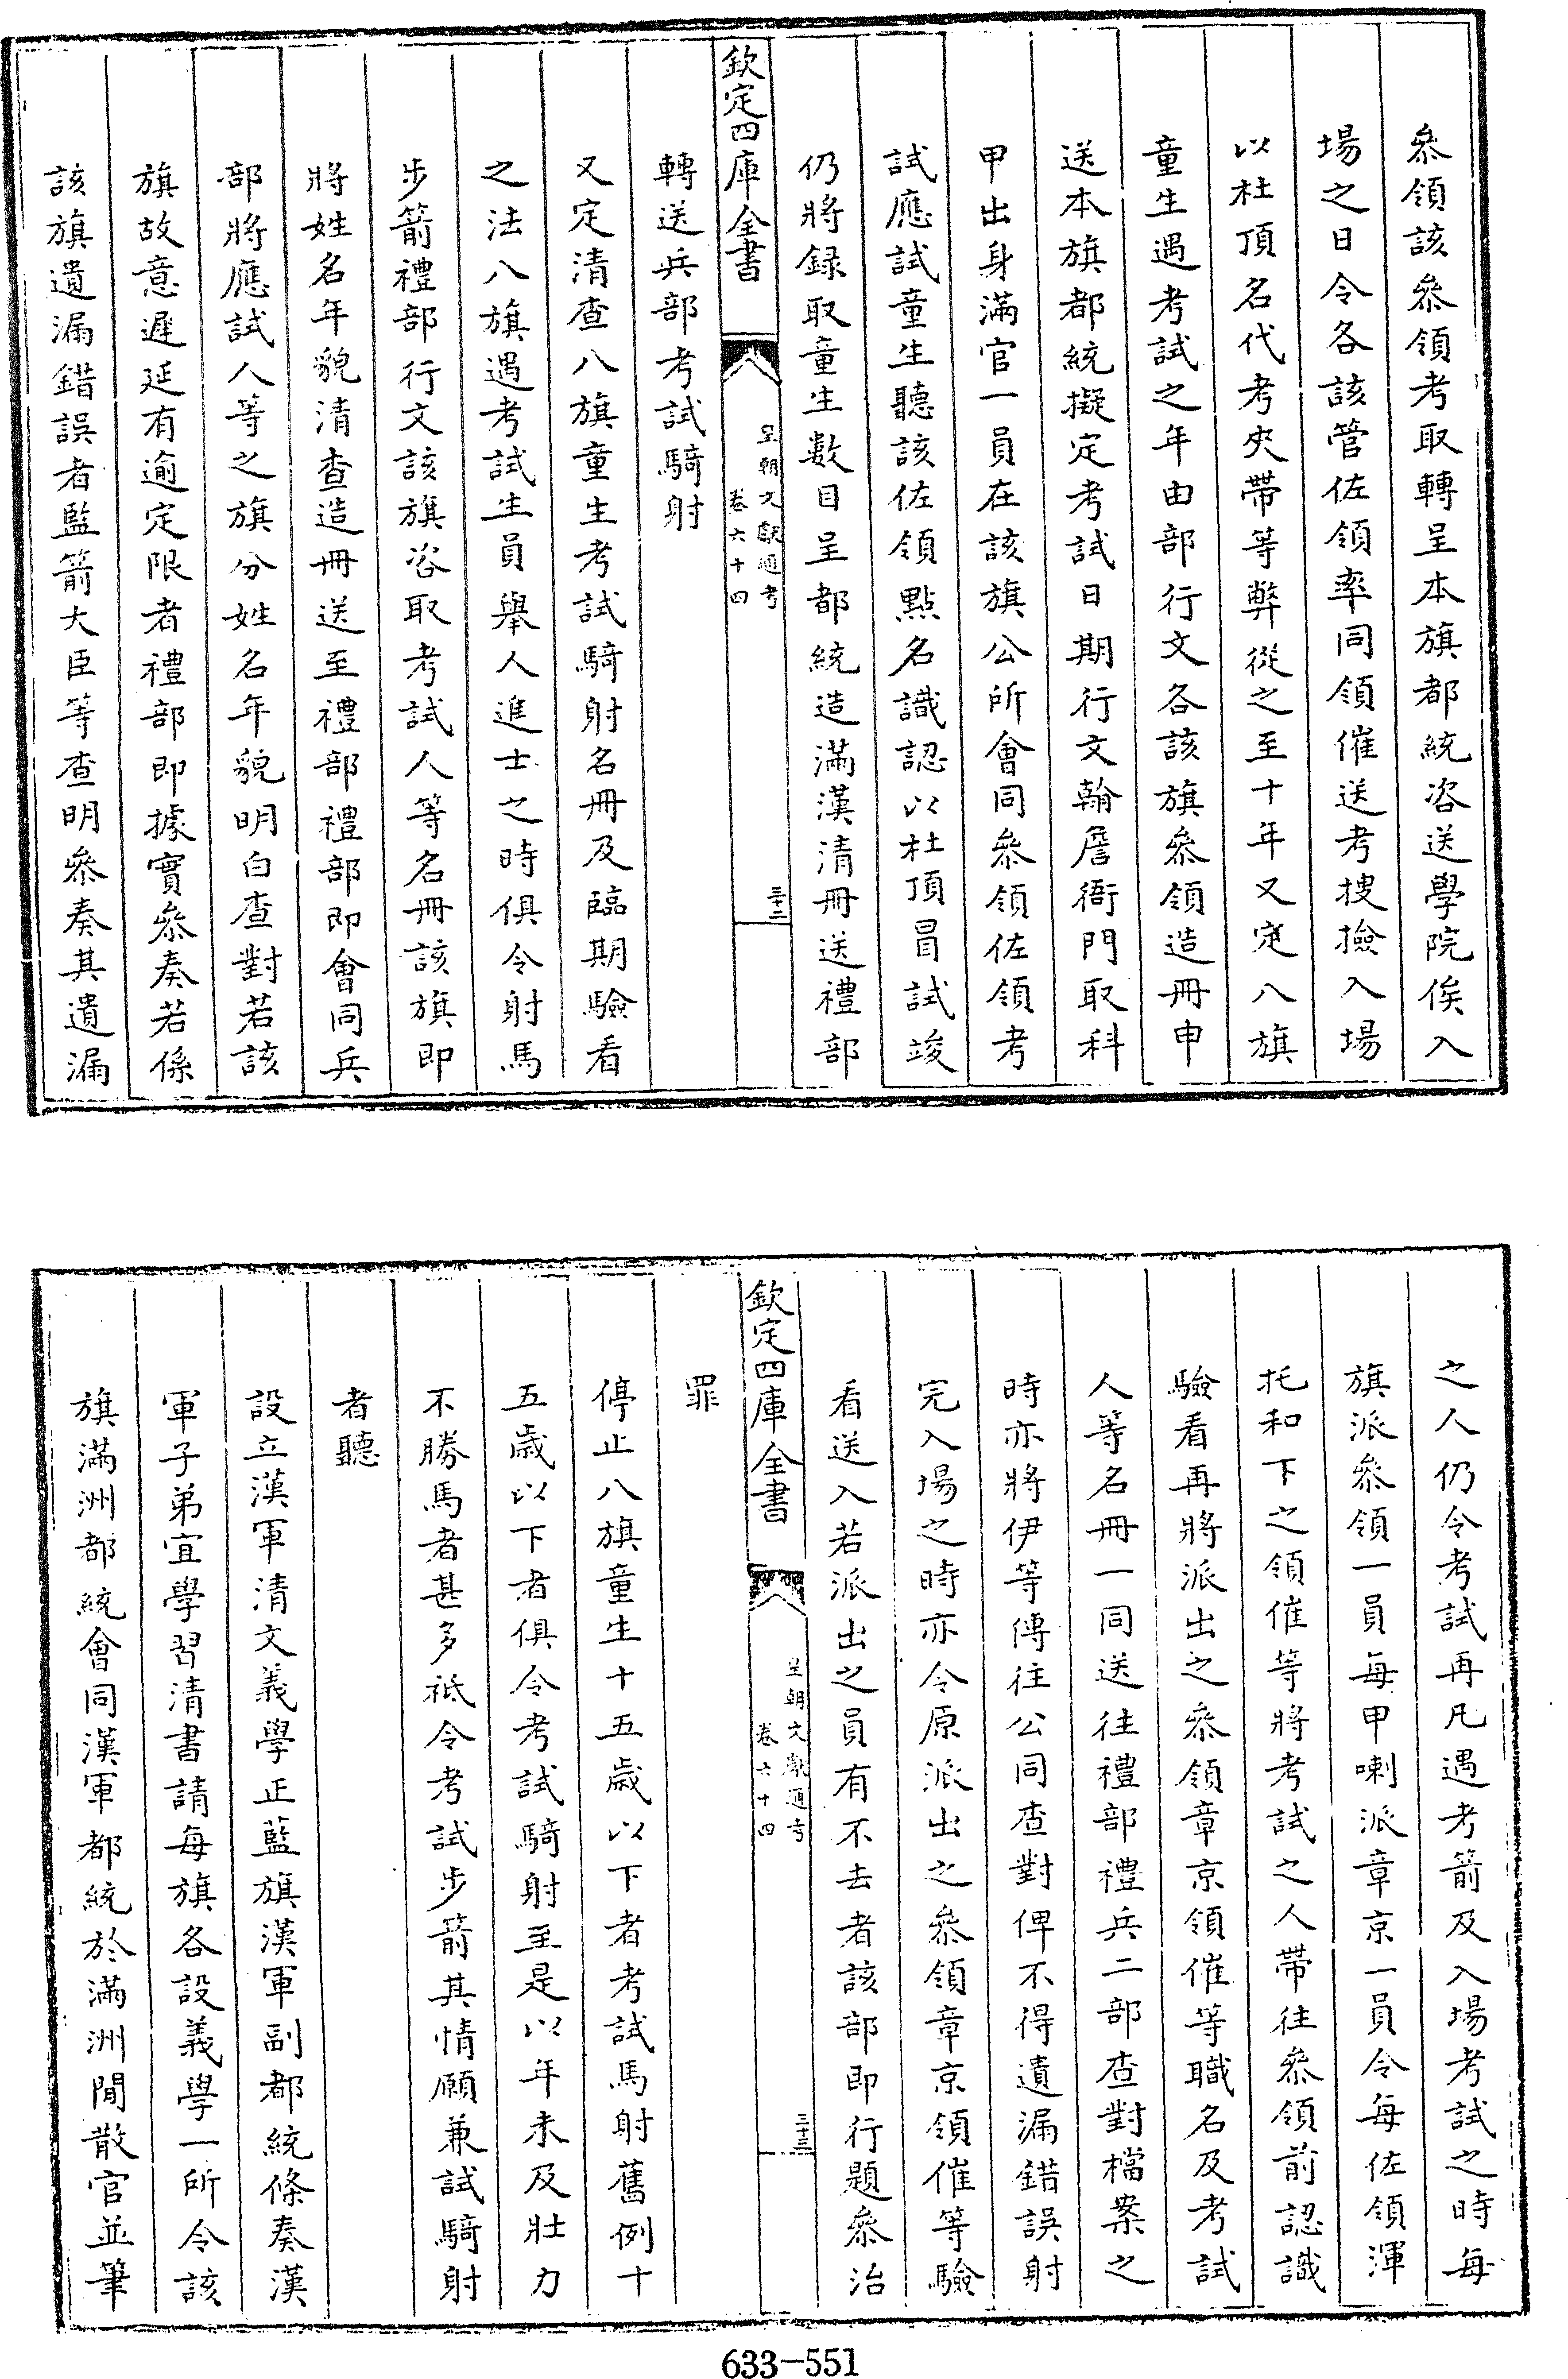 叅領該叅領考取轉呈本旗都統咨送學院俟入
場之日令各該管佐領率同領催送考搜撿入場
以杜頂名代考夾帶等弊從之至十年又定八旗
童生遇考試之年由部行文各該旗叅領造冊申
送本旗都統擬定考試日期行文翰詹衙門取科
甲出身滿官一員在該旗公所會同叅領佐領考
試應試童生聽該佐領點名識認以杜頂冒試竣
仍將録取童生數目呈都統造滿漢清冊送禮部
欽定四庫全書
皇朝文獻通考
卷六十四
三十二
轉送兵部考試騎射
又定清查八旗童生考試騎射名冊及臨期驗看
之法八旗遇考試生員舉人進士之時俱令射馬
步箭禮部行文該旗咨取考試人等名冊該旗即
將姓名年貌清查造冊送至禮部禮部即會同兵
部將應試人等之旗分姓名年貌明白查對若該
旗故意遲延有逾定限者禮部即據實叅奏若係
該旗遺漏錯誤者監箭大臣等查明叅奏其遺漏
之人仍令考試再凡遇考箭及入場考試之時每
旗派叅領一員每甲喇派章京一員令每佐領渾
托和下之領催等將考試之人帶往叅領前認識
驗看再將派出之叅領章京領催等職名及考試
人等名冊一同送往禮部禮兵二部查對檔案之
時亦將伊等傳往公同查對俾不得遺漏錯誤射
完入場之時亦令原派出之叅領章京領催等驗
看送入若派出之員有不去者該部即行題叅治
欽定四庫全書
皇朝文獻通考
卷六十四
三十三
罪
停止八旗童生十五歲以下者考試馬射舊例十
五歲以下者俱令考試騎射至是以年未及壯力
不勝馬者甚多祗令考試步箭其情願兼試騎射
者聽
設立漢軍清文義學正藍旗漢軍副都統條奏漢
軍子弟宜學習清書請每旗各設義學一所令該
旗滿洲都統會同漢軍都統於滿洲閒散官並筆
633-551